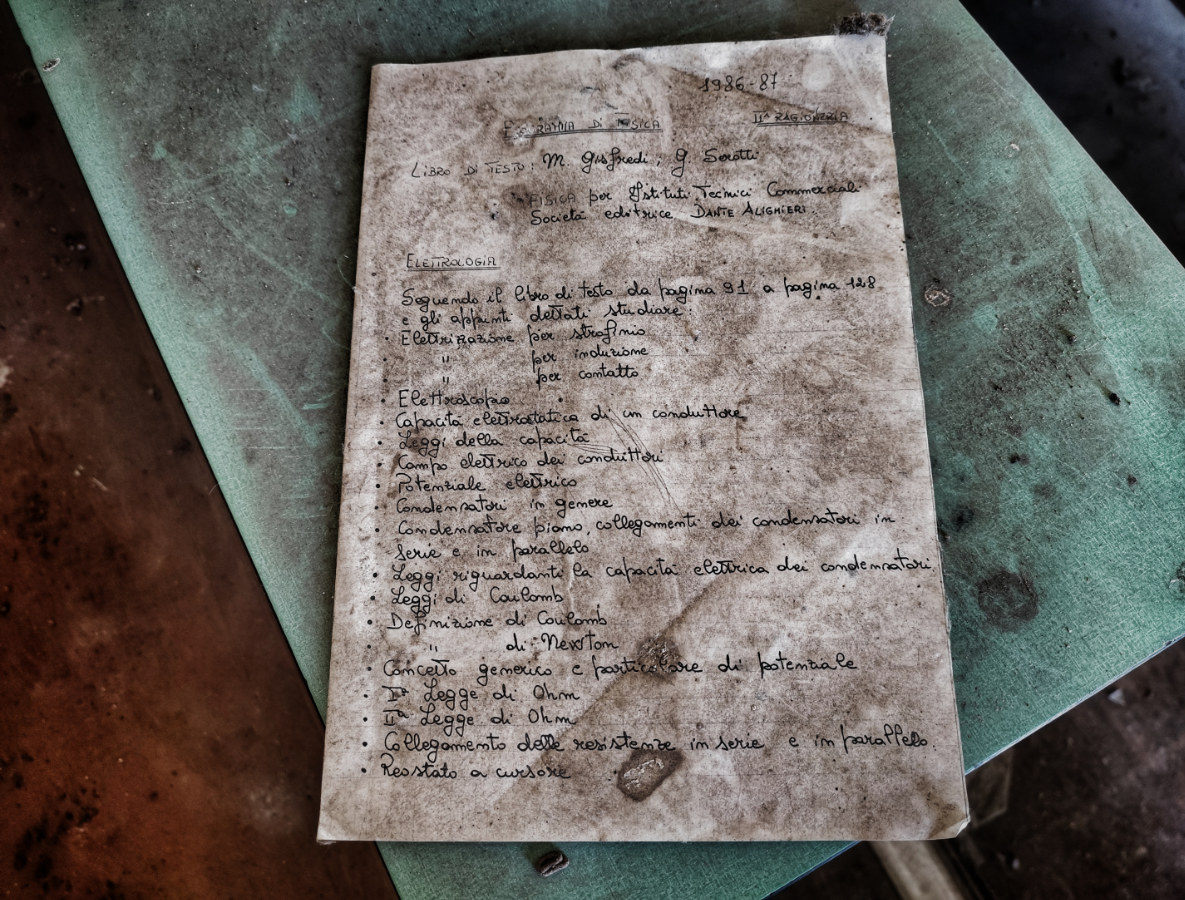 1986-87
DI FISICA
IIª RAGIONERIA
LIBRO DI TESTO: M. Gisfredi; G. Serotti
FISICA per Istituti Tecnici Commerciali
Società editrice DANTE ALIGHIERI.
ELETTROLOGIA
Seguendo il libro di testo da pagina 91 a pagina 128
e gli appunti dettati studiare:
• Elettrizazione per strofinio
• " per induzione
• " per contatto
• Elettroscopio
• Capacità elettrostatica di un conduttore
• Leggi della capacità
• Campo elettrico dei conduttori
• Potenziale elettrico
• Condensatori in genere
• Condensatore piano, collegamenti dei condensatori in
serie e in parallelo
• Leggi riguardanti la capacità elettrica dei condensatori.
• Leggi di Coulomb
• Definizione di Coulomb
• " di Newton
• Concetto generico e particolare di potenziale
• Iª Legge di Ohm
• IIª Legge di Ohm
• Collegamento delle resistenze in serie e in parallelo.
• Reostato a cursore